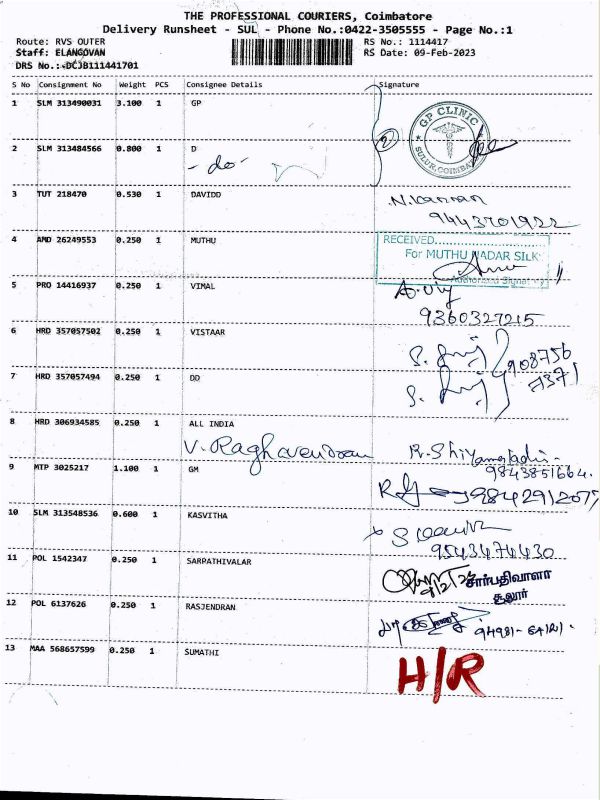 THE PROFESSIONAL COURIERS, Coimbatore
Delivery Runsheet - SUL - Phone No.:0422-3505555 - Page No.:1
Route: RVS OUTER
RS No.: 1114417
Staff: ELANGOVAN
RS Date: 09-Feb-2023
DRS No.:-DCJB111441701
S No Consignment No Weight PCS Consignee Details Signature
1 SLM 313490031 3.100 1 GP
GP CLINIC
SULUR, COIMBATORE
2 SLM 313484566 0.800 1 D
- do -
3 TUT 218470 0.530 1 DAVIDD
N. Kannan
9443701922
4 AMD 26249553 0.250 1 MUTHU
RECEIVED
For MUTHU NADAR SILK
Authorized Signat
5 PRO 14416937 0.250 1 VIMAL
9360327215
6 HRD 357057502 0.250 1 VISTAAR
908756
7371
7 HRD 357057494 0.250 1 DD
8 HRD 306934585 0.250 1 ALL INDIA
V. Raghavendran
9843851664.
9 MTP 3025217 1.100 1 GM
10 SLM 313548536 0.600 1 KASVITHA
9543474430
11 POL 1542347 0.250 1 SARPATHIVALAR
சார்பதிவாளர்
சூலூர்
12 POL 6137626 0.250 1 RASJENDRAN
13 MAA 568657599 0.250 1 SUMATHI
H/R